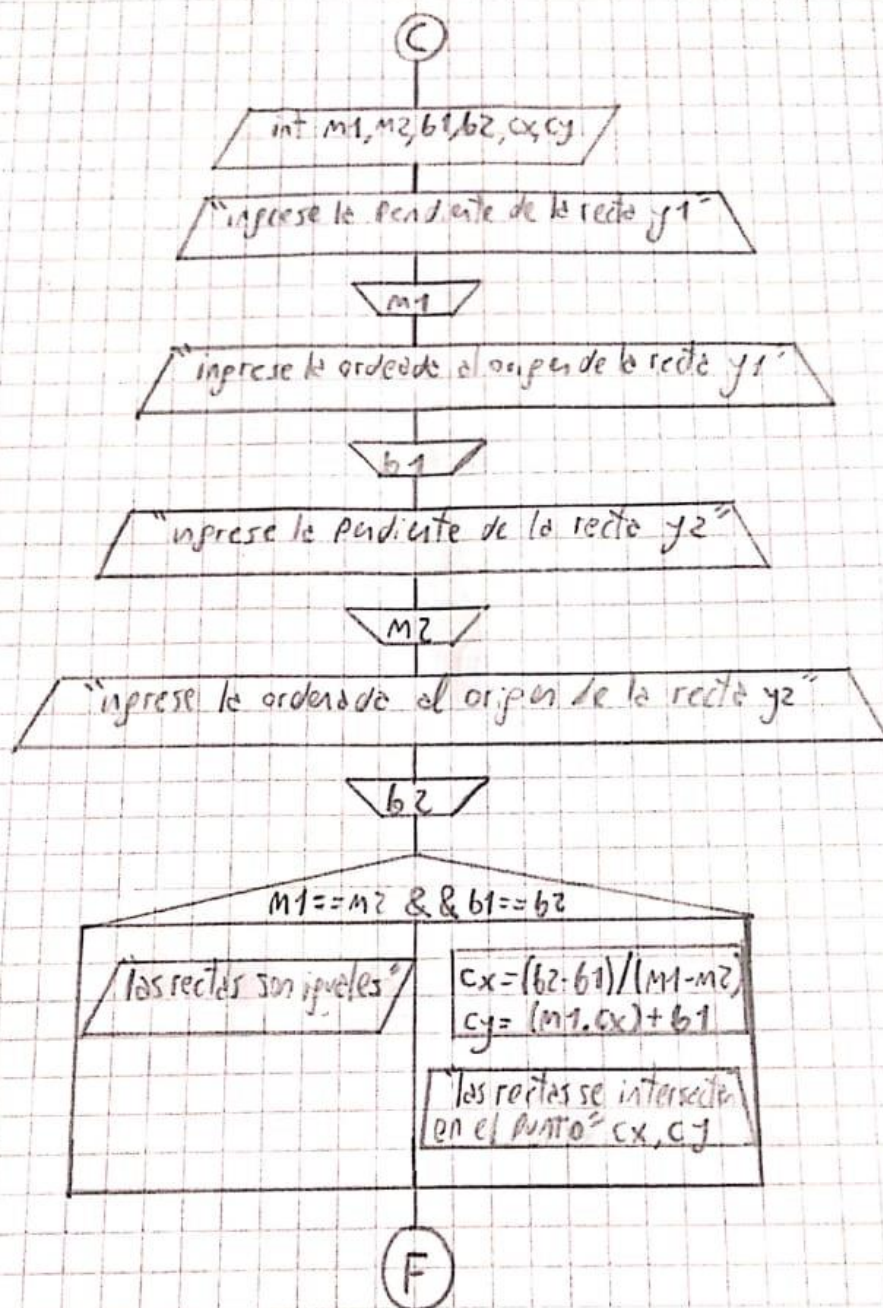 C
int m1, m2, b1, b2, cx, cy
"ingrese la pendiente de la recta y1"
m1
"ingrese la ordeada al origen de la recta y1"
b1
"ingrese la pendiente de la recta y2"
m2
"ingrese la ordenada al origen de la recta y2"
b2
m1==m2 && b1==b2
"las rectas son iguales"
cx=(b2-b1)/(m1-m2)
cy=(m1.cx)+b1
"las rectas se intersectan
en el punto" cx, cy
F